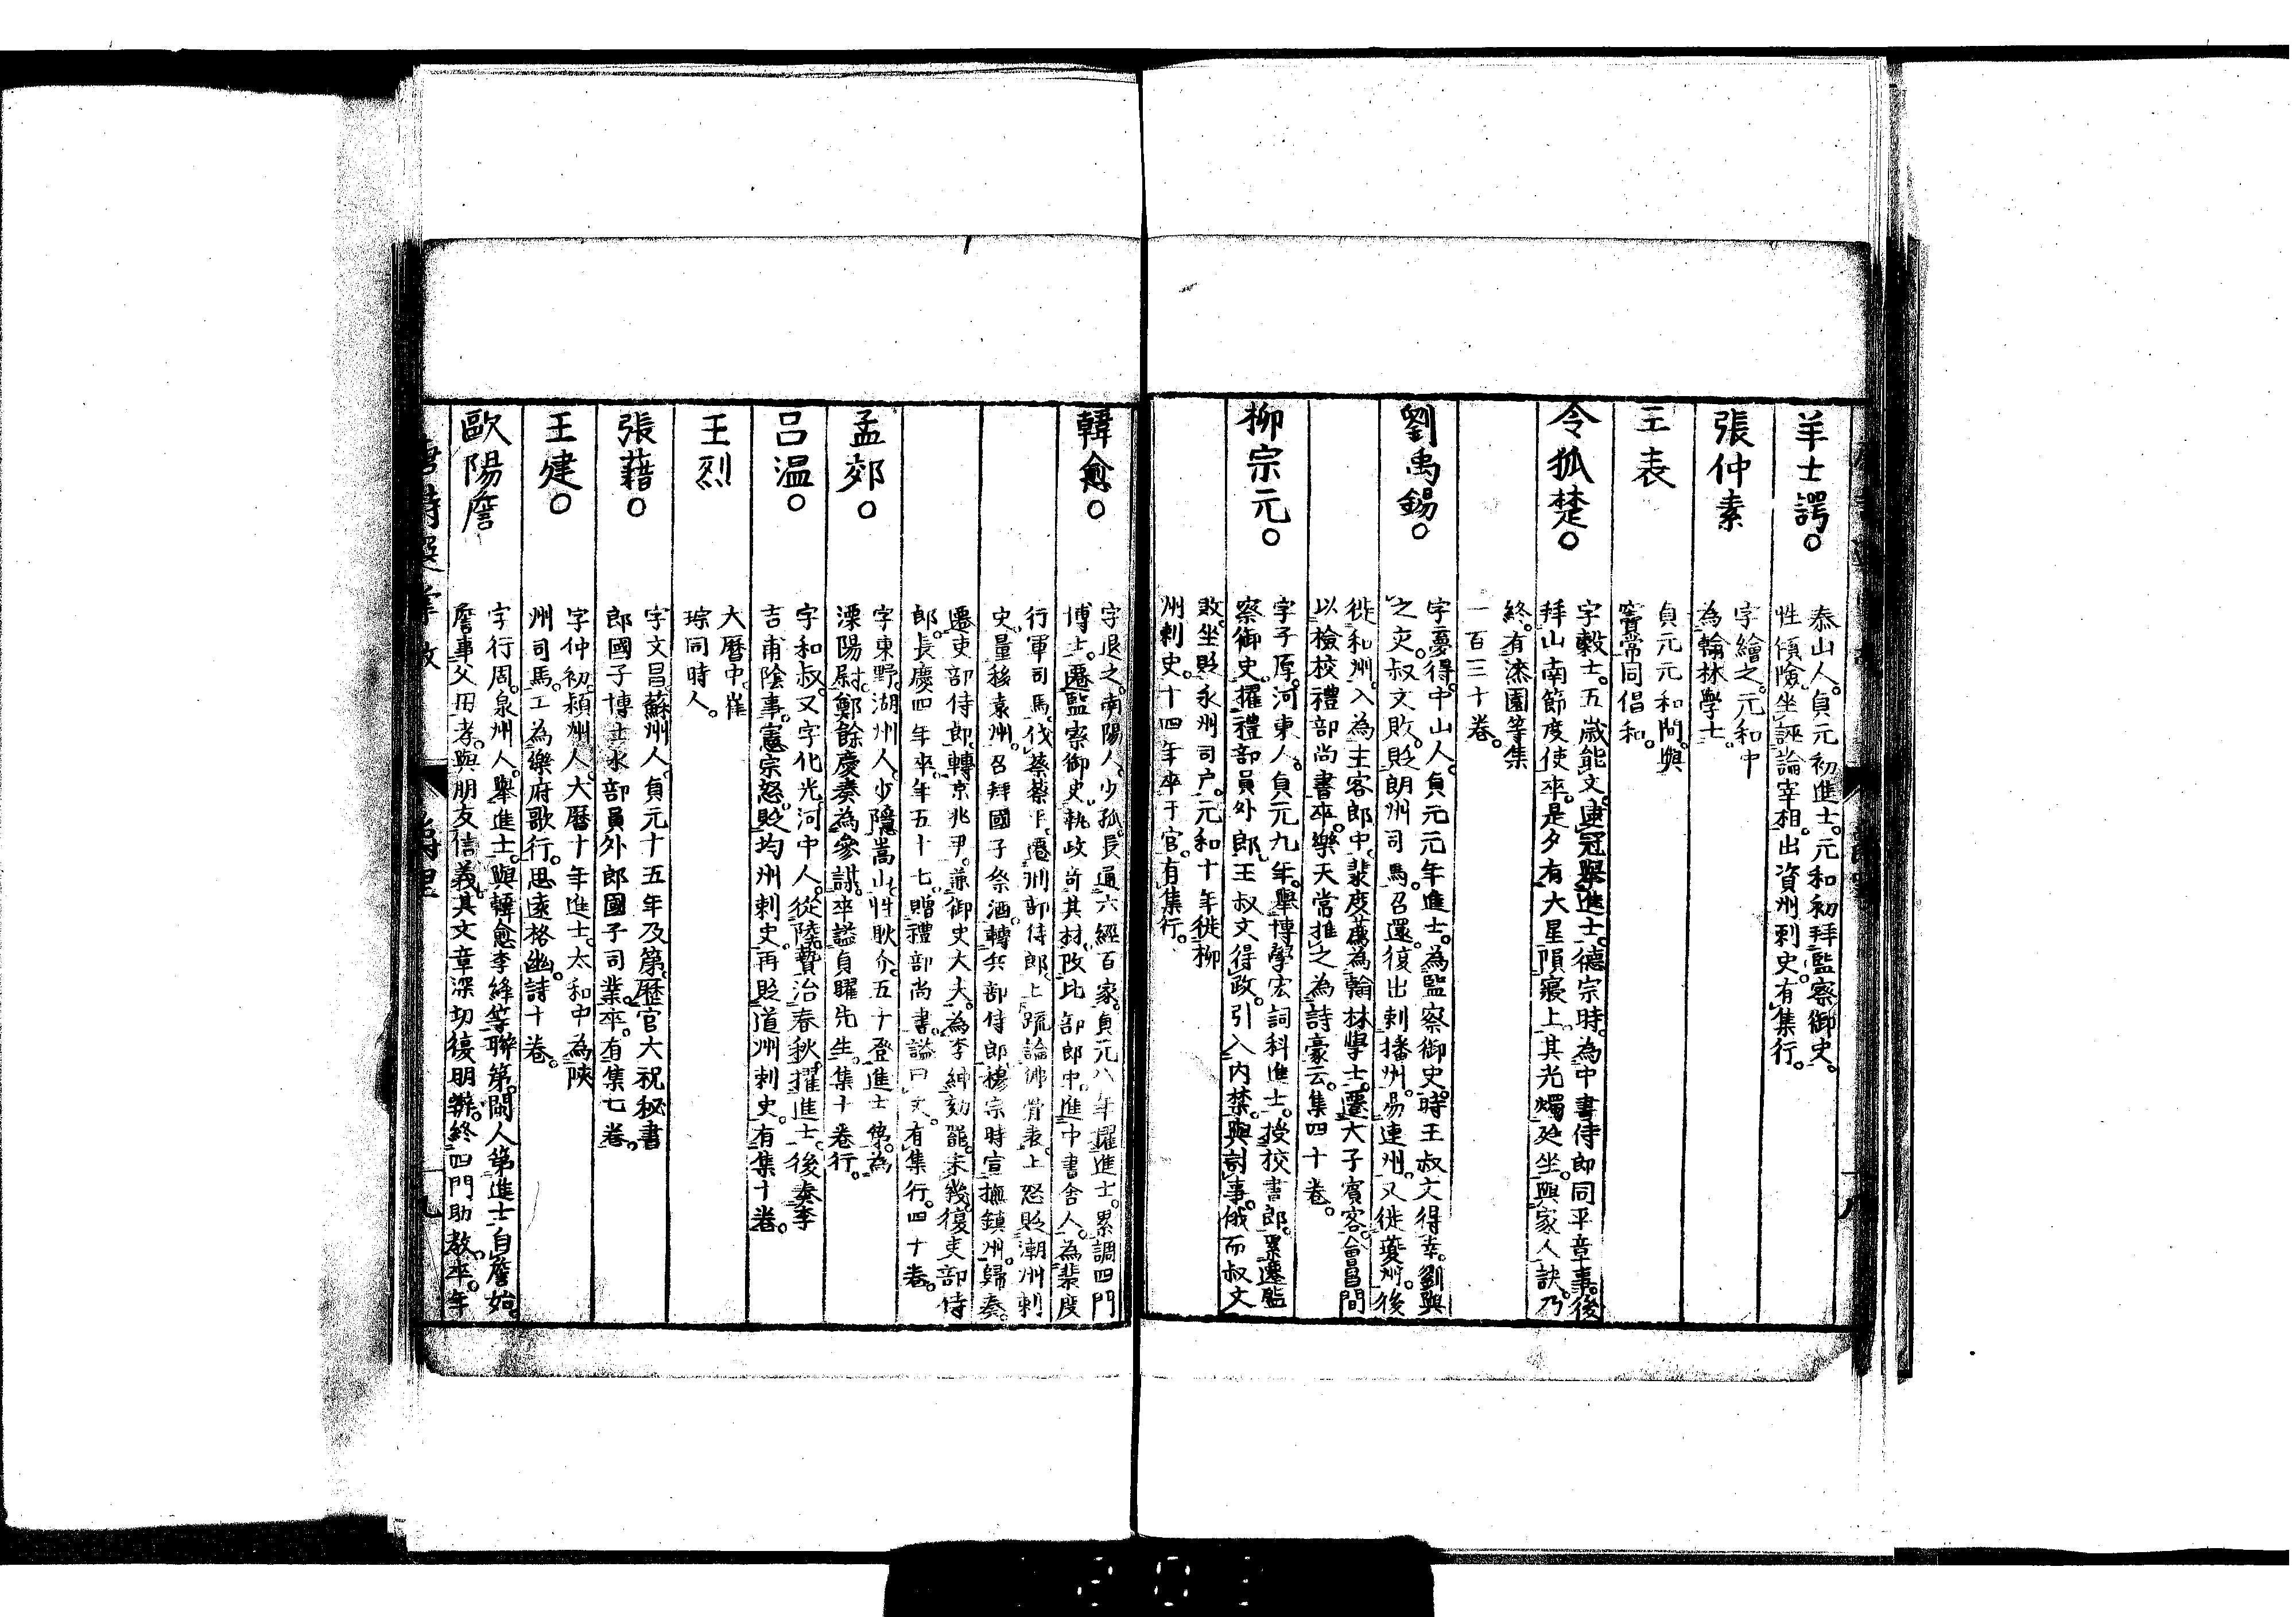 羊士諤。
泰山人。貞元初進士。元和初拜監察御史。
性傾險。坐誣論宰相。出資州刺史。有集行。
張仲素
字繪之。元和中
為翰林學士。
王表
貞元元和間。與
竇常同倡和。
令狐楚。
字轂士。五歲能文。逮冠擧進士。德宗時。為中書侍郎同平章事。後
拜山南節度使卒。是夕有大星隕寢上。其光燭廷坐。與家人訣。乃
終。有漆園等集
一百三十卷。
劉禹錫。
字夢得。中山人。貞元元年進士。為監察御史。時王叔文得幸。劉與
之交。叔文敗。貶朗州司馬。召還。復出刺播州。易連州。又徙夔州。後
徙和州。入為主客郎中。裴度薦為翰林學士。遷大子賓客。會昌間
以檢校禮部尚書卒。樂天常推之為詩豪云。集四十卷。
柳宗元。
字子厚。河東人。貞元九年。擧博學宏詞科進士。授校書郎。累遷監
察御史。擢禮部員外郎。王叔文得政。引入內禁。與計事。俄而叔文
敗。坐貶永州司戶。元和十年徙柳
州刺史。十四年卒于官。有集行。
韓愈。
字退之。南陽人。少孤。長通六經百家。貞元八年擢進士。累調四門
博士。遷監察御史。執政奇其材。改比部郎中。進中書舍人。為裴度
行軍司馬。伐蔡蔡平。遷刑部侍郎。上疏論佛骨表。上怒貶潮州刺
史。量移袁州。召拜國子祭酒。轉兵部侍郎。穆宗時宣撫鎮州。歸奏。
遷吏部侍郎。轉京兆尹。兼御史大夫。為李紳劾罷。未幾復吏部侍
郎。長慶四年卒。年五十七。贈禮部尚書。謚曰文。有集行。四十卷。
孟郊。
字東野。湖州人。少隱嵩山。性耿介。五十登進士第。為
溧陽尉。鄭餘慶奏為參謀。卒謚貞曜先生。集十卷行。
呂温。
字和叔。又字化光。河中人。從陸贄治春秋。擢進士。後奏李
吉甫陰事。憲宗怒。貶均州刺史。再貶道州刺史。有集十卷。
王烈
大曆中。崔
琮同時人。
張藉。
字文昌。蘇州人。貞元十五年及第。歷官大祝秘書
郎國子博士水部員外郎國子司業。卒。有集七卷。
王建。
字仲初。潁州人。大曆十年進士。太和中為陝
州司馬。工為樂府歌行。思遠格幽。詩十卷。
歐陽詹
字行周。泉州人。擧進士。與韓愈李絳等聯第。閩人第進士自詹始。
詹事父母孝。與朋友信義。其文章深切復明辨。終四門助敎。卒。年